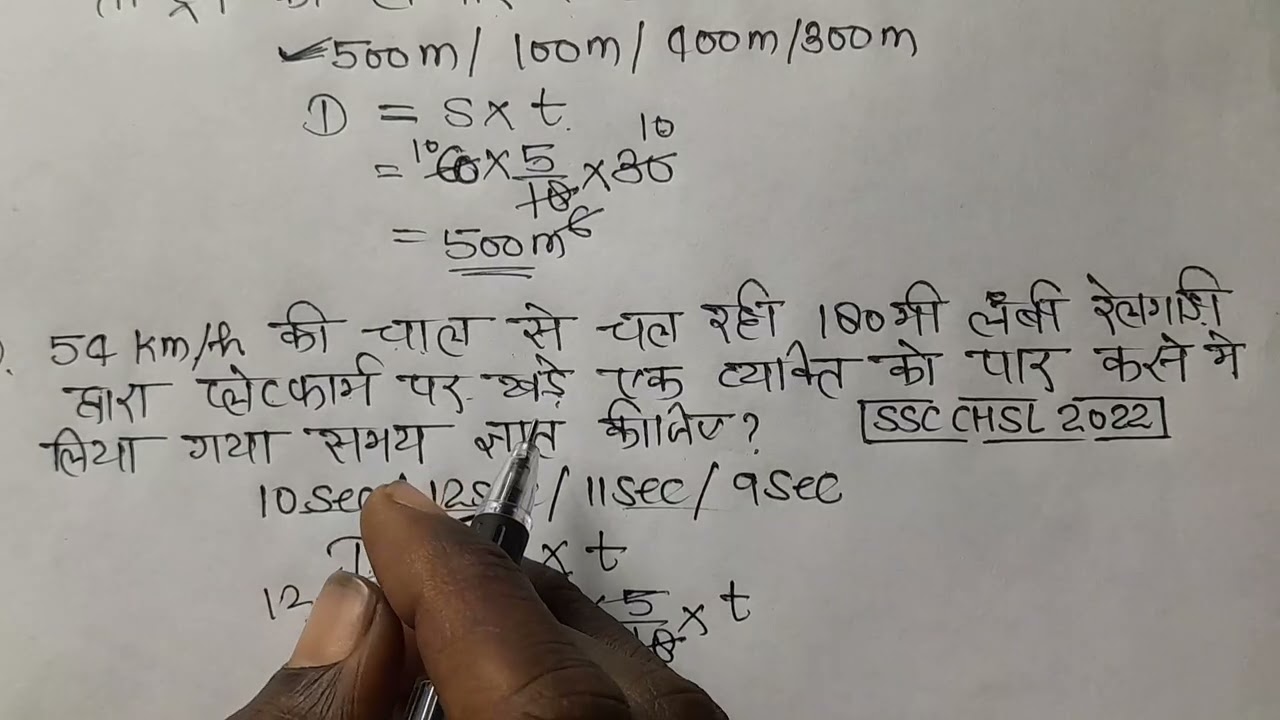 500m / 100m / 400m / 300m
D = S x t.
= 10 60 x 5/18 x 30 10
= 500m 6
54 Km/h की चाल से चल रही 180 मी लंबी रेलगाड़ी
द्वारा प्लेटफार्म पर खड़े एक व्यक्ति को पार करने मे
लिया गया समय ज्ञात कीजिए? SSC CHSL 2022
10sec / 11sec / 9sec
x t
12 5/18 x t